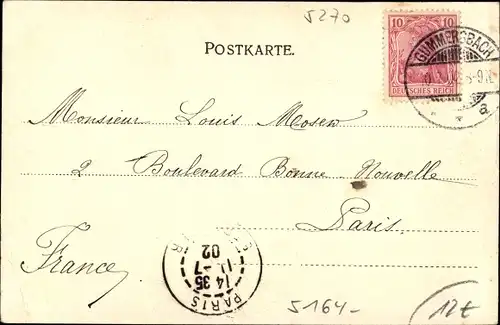 5270
POSTKARTE.
10 10
DEUTSCHES REICH
GUMMERSBACH
a
Monsieur Louis Moser
2 Boulevard Bonne-Nouvelle
Paris.
France.
PARIS
14 35
02
5164-
12€